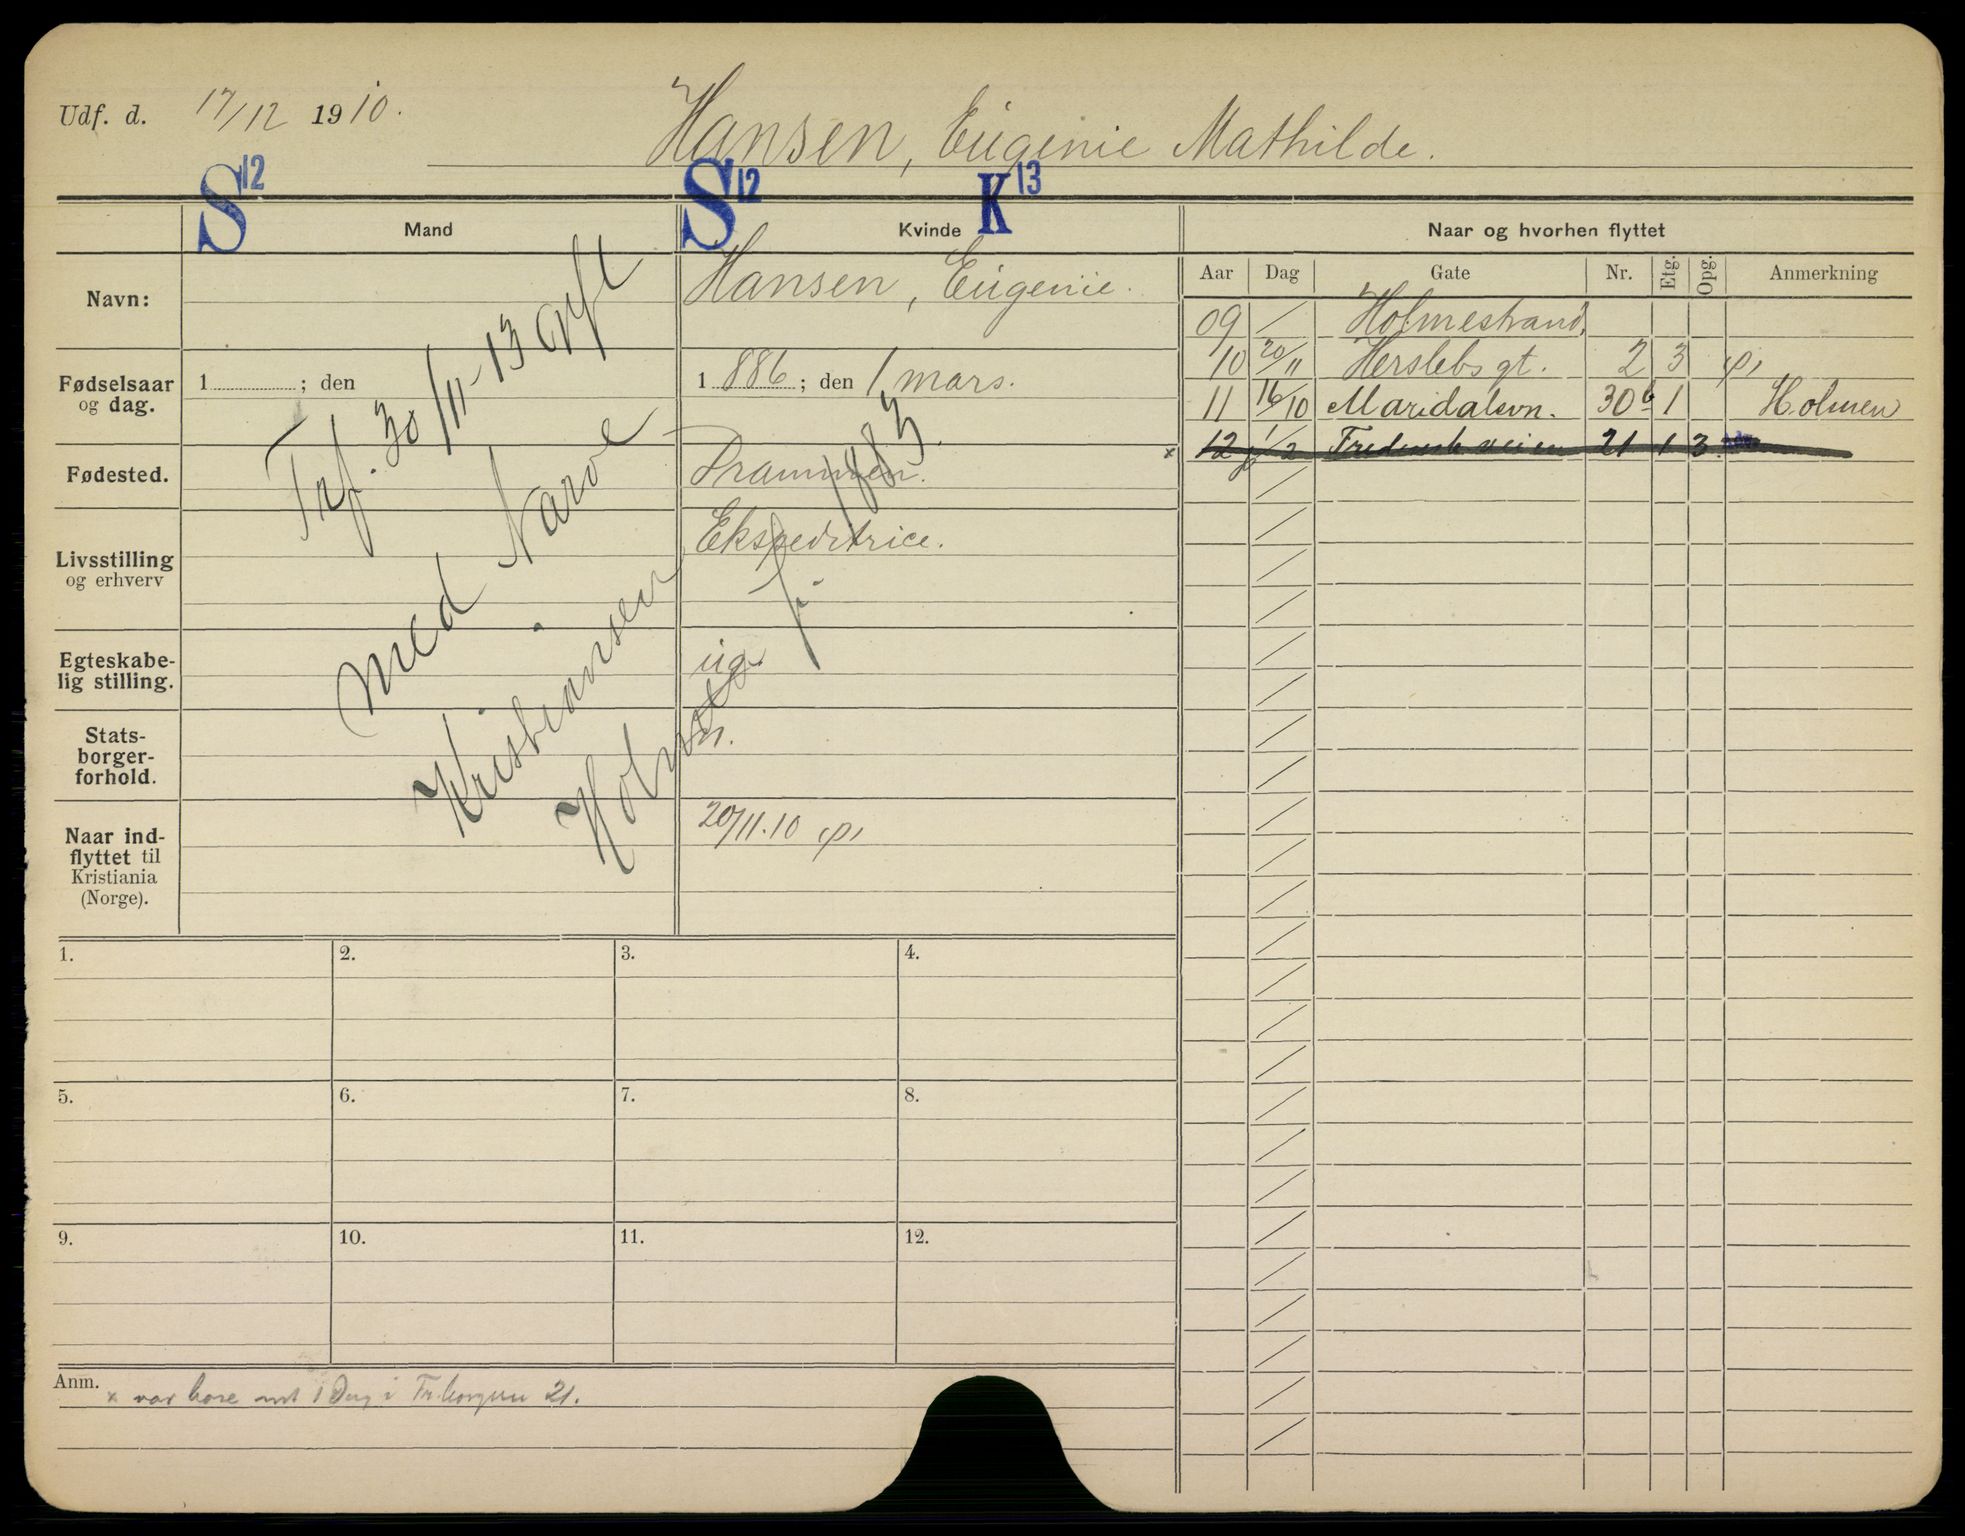 Udf. d. 17/12 1910.
Hansen, Eugenie Mathilde.
S12 S12 K13
Mand Kvinde Naar og hvorhen flyttet
Navn: Hansen, Eugenie.
Fødselsaar og dag. 1 ; den 1886; den 1 mars.
1883
Fødested. Drammen.
Livsstilling og erhverv Ekspeditrice.
Egteskabelig stilling. ug.
Statsborgerforhold. n.
Naar indflyttet til Kristiania (Norge). 20/11.10
Trf. 30/11-13 gift
med Narve
Kristiansen
Aar Dag Gate Nr. Etg. Opg. Anmerkning
09 Holmestrand.
10 20/11 Herslebs gt. 2 3
11 16/10 Maridalsvn. 30b 1 Holmen
x 12 1/2 21 1 3
1. 2. 3. 4.
5. 6. 7. 8.
9. 10. 11. 12.
Anm. x var bare 1 Dag i 21.